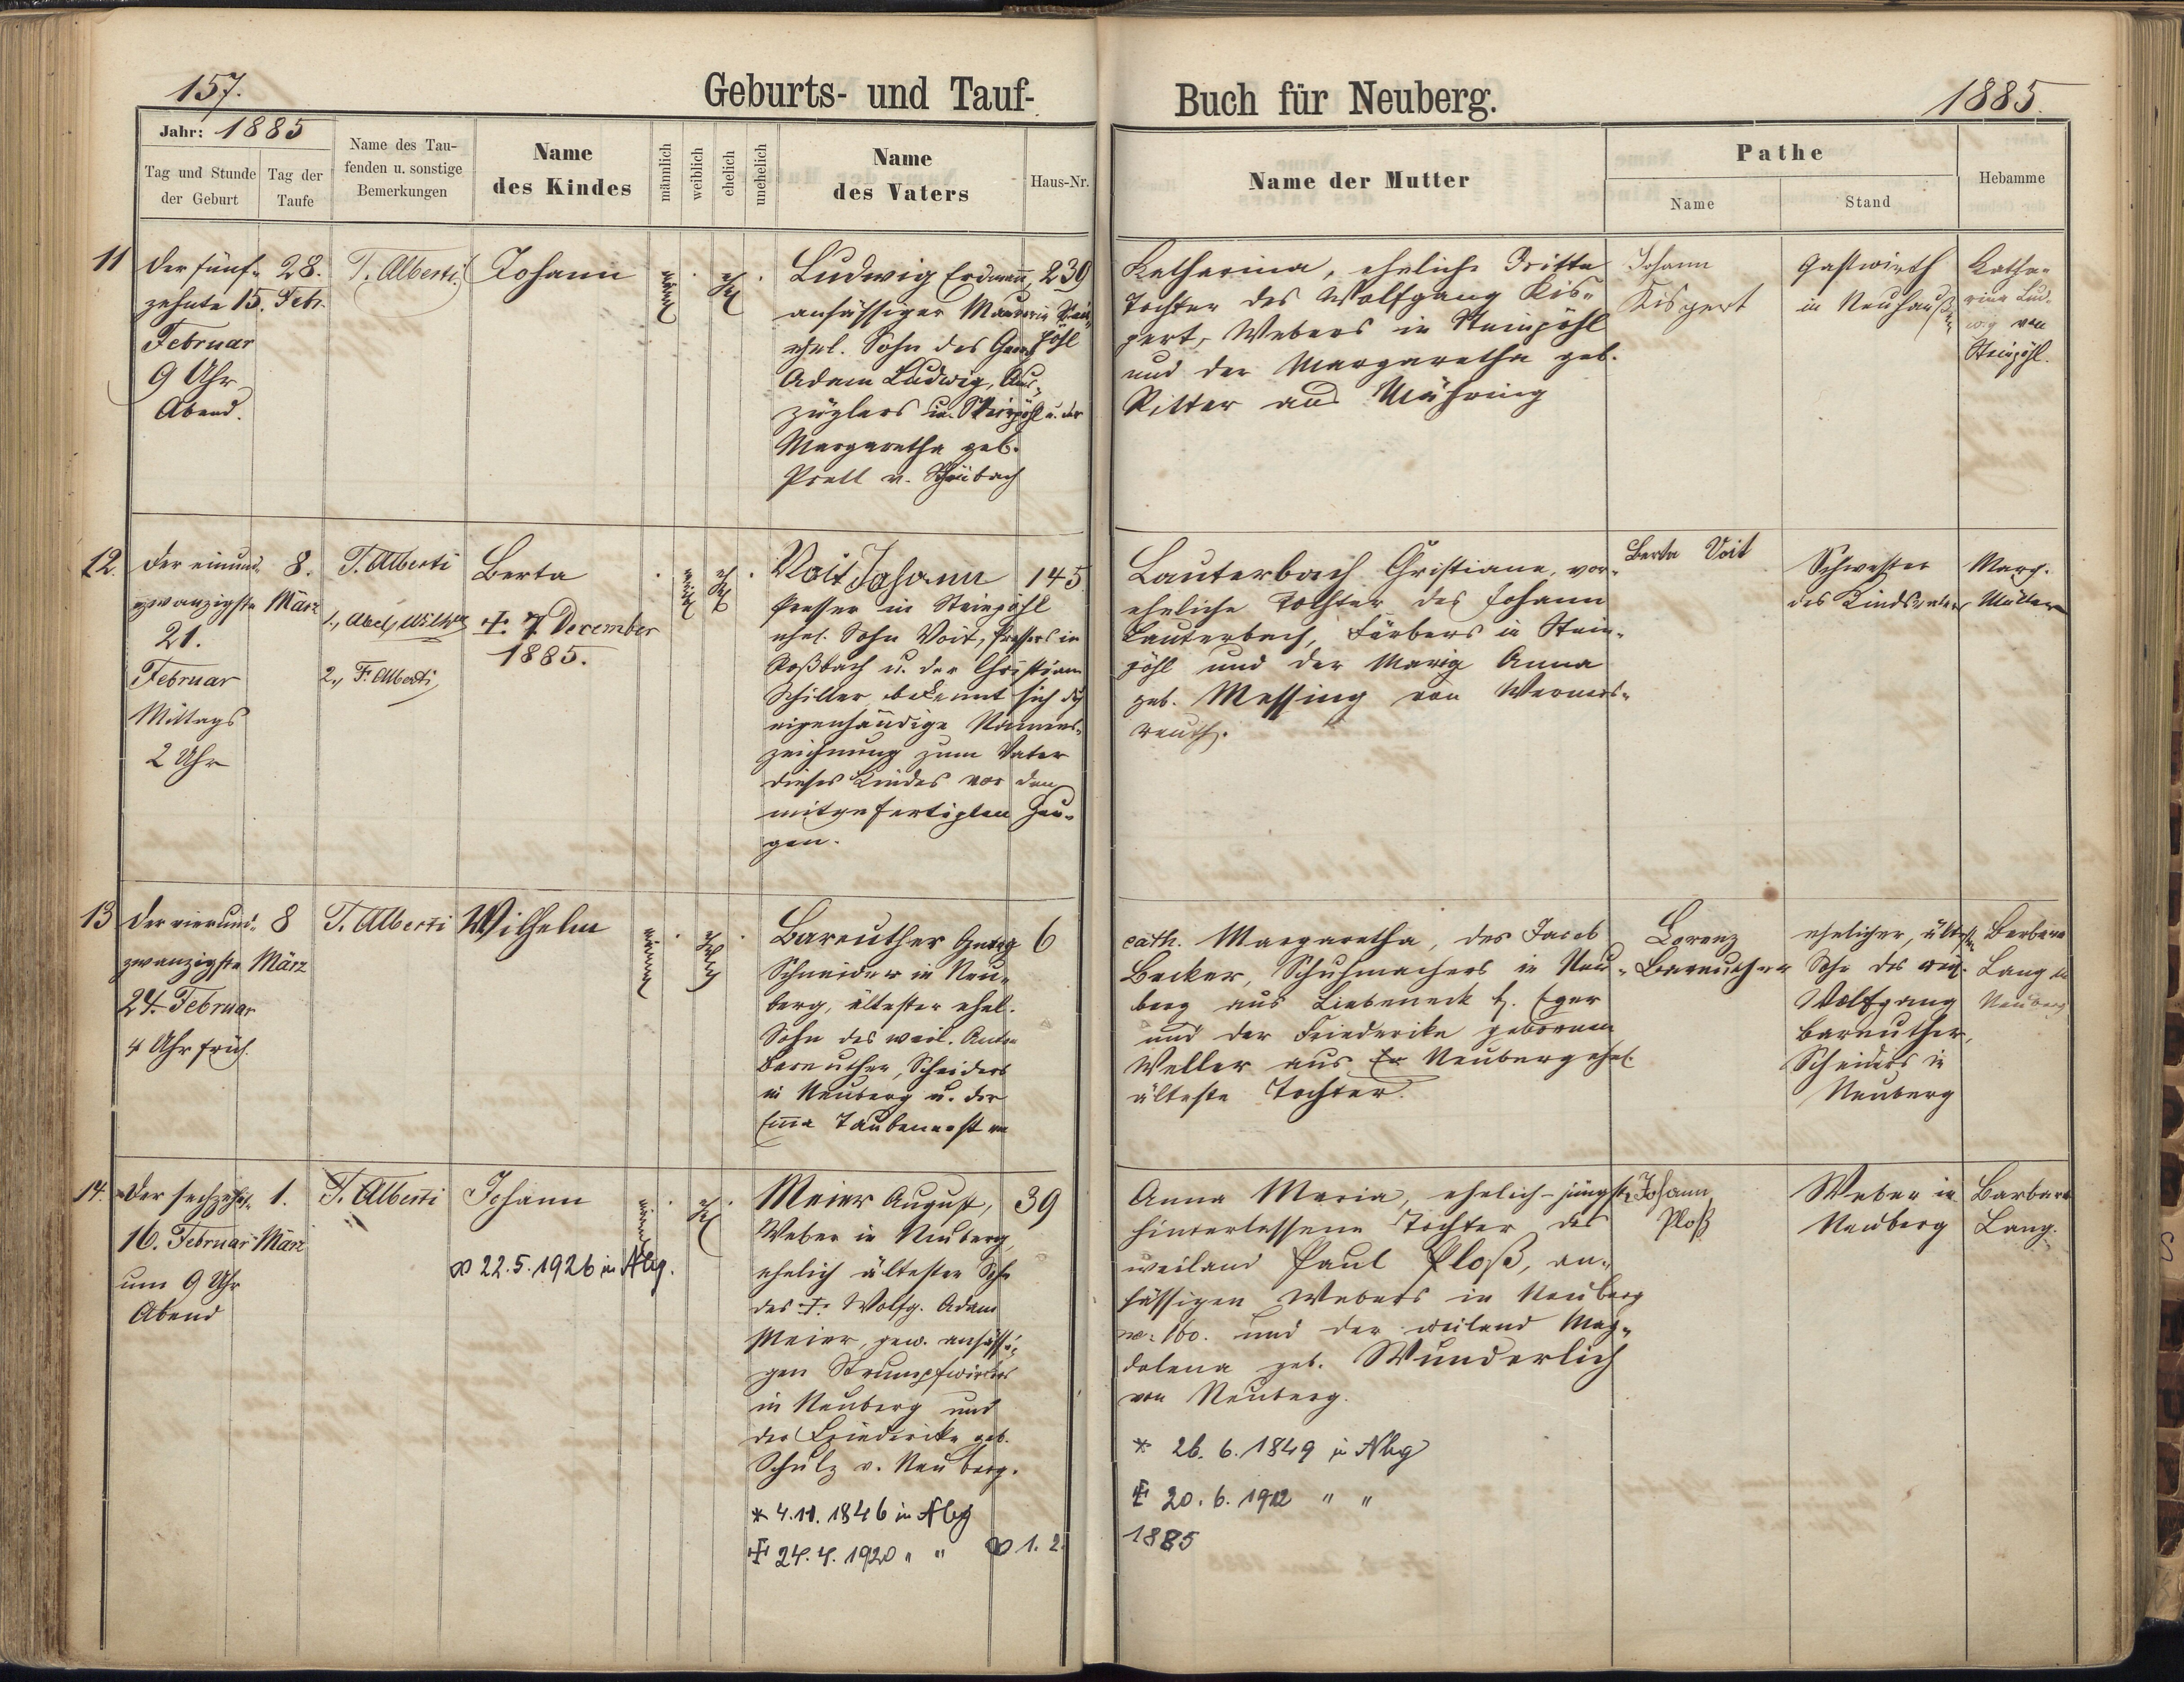 157.
Geburts- und Tauf-
Buch für Neuberg.
1885.
Jahr: 1885
Tag und Stunde
der Geburt
Tag der
Taufe
Name des Tau-
fenden u. sonstige
Bemerkungen
Name
des Kindes
männlich
weiblich
ehelich
unehelich
Name
des Vaters
Haus-Nr.
Name der Mutter
Pathe
Name
Stand
Hebamme
11
Der fünf-
zehnte 15.
Februar
9 Uhr
Abend.
28.
Febr.
T. Alberti
Johann
männl.
ehel.
Ludwig Erdmann, 239
ansässiger Maurer in Stein-
ehel. Sohn des Georg pöhl
Adam Ludwig, Aus-
züglers in Steinpöhl u. der
Margaretha geb.
Prell v. Schönbach
Katharina, eheliche dritte
Tochter des Wolfgang Kis-
pert, Webers in Steinpöhl
und der Margaretha geb.
Ritter aus Mähring
Johann
Kispert
Gastwirth
in Neuhausen
Katha-
rina Lud-
wig von
Steinpöhl.
12.
Der einund-
zwanzigste
21.
Februar
Mittags
2 Uhr
8.
März
T. Alberti
2., F. Alberti
Berta
+ 7 December
1885.
weibl.
ehel.
Voit Johann 145
Presser in Steinpöhl
ehel. Sohn Voit, Pressers in
Roßbach u. der Christiane
Schiller bekennt sich durch
eigenhändige Namens-
zeichnung zum Vater
dieses Kindes vor den
mitgefertigten Zeu-
gen.
Lauterbach Christiane, vor-
eheliche Tochter des Johann
Lauterbach, Färbers in Stein-
pöhl und der Maria Anna
geb. Messing von Werners-
reuth.
Berta Voit
Schwester
des Kindsvaters
Marg.
Müller
13
Der vierund-
zwanzigste
24. Februar
4 Uhr früh.
8
März
T. Alberti
Wilhelm
männl.
ehelich
Bareuther Georg 6
Schneider in Neu-
berg, ältester ehel.
Sohn des weil. Anton
Bareuther, Schneiders
in Neuberg u. der
Emma Taubenerst
cath. Margaretha, des Jacob
Becker, Schuhmachers in Neu-
berg aus Liebeneck b. Eger
und der Friederike geborenen
Weller aus Neuberg ehel.
älteste Tochter.
Lorenz
Bareuther
ehelicher, ältester
Sohn des
Wolfgang
Bareuther,
Schneiders in
Neuberg
Barbara
Lang in
Neuberg
14.
Der sechzehnte
16. Februar
um 9 Uhr
Abend
1.
März
T. Alberti
Johann
∞ 22.5.1926 in Nbg.
männl.
ehel.
Meier August, 39
Weber in Neuberg,
ehelich ältester Sohn
des + Wolfg. Adam
Meier, gew. ansässi-
gen Strumpfwirkers
in Neuberg und
der Friederike geb.
Schulz v. Neuberg.
* 4.11.1846 in Nbg
+ 24.4.1920 " " ∞ 1.2.
Anna Maria, ehelich-jüngste
hinterlassene Tochter des
weiland Paul Ploß, an-
sässigen Webers in Neuberg
No. 160. und der weiland Mag-
dalena geb. Wunderlich
von Neuberg.
* 26.6.1849 in Nbg
+ 20.6.1912 " "
1885
Johann
Ploß
Weber in
Neuberg
Barbara
Lang.